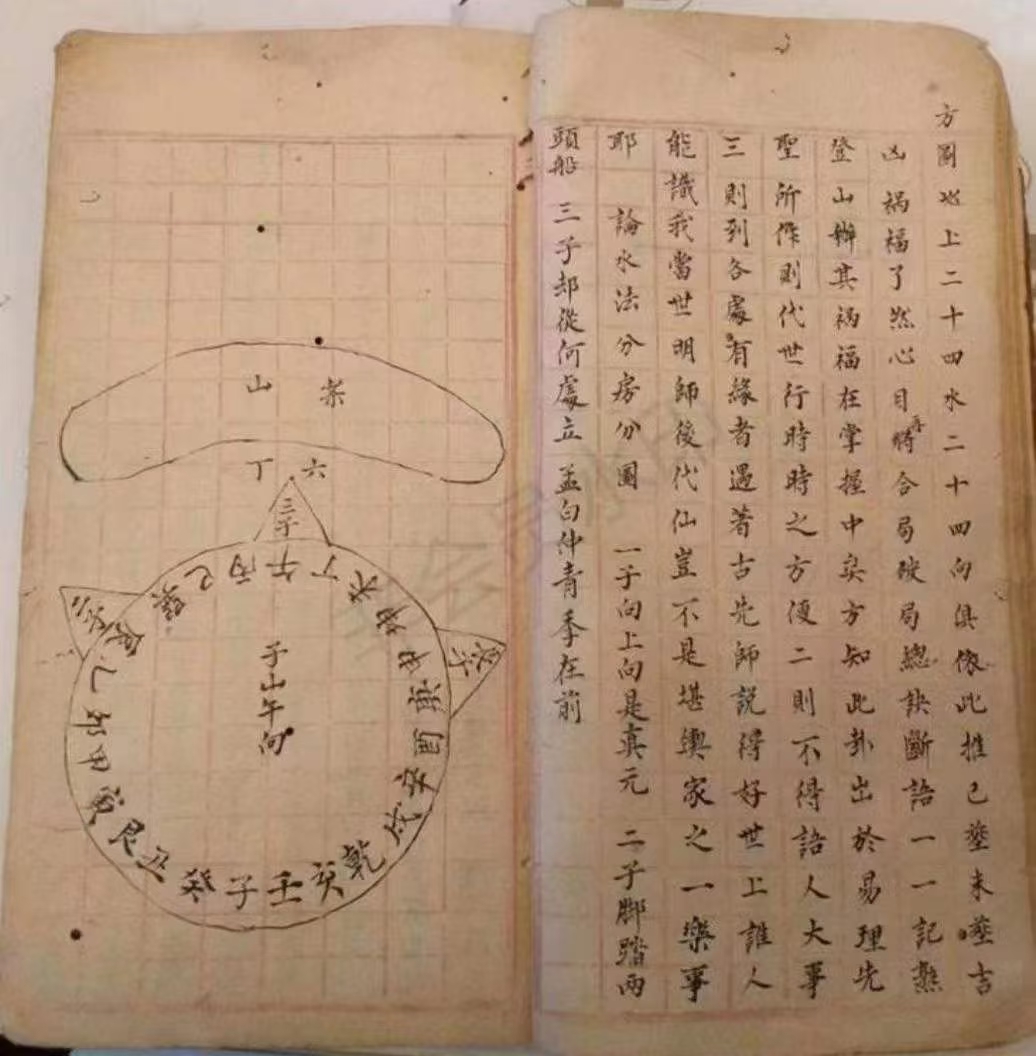 方圖地上二十四水二十四向俱倣此推已塟未塟吉
凶禍福了然心目再將合局破局總訣斷語一一記熟
登山辦其禍福在掌握中矣方知此卦出於易理先
聖所作則代世行時時之方便二則不得語人大事
三則到各處有緣者遇著古先師説得好世上誰人
能識我當世明師後代仙豈不是堪輿家之一樂事
耶 論水法分房分圖 一子向上向是真元 二子脚踏兩
頭船 三子却從何處立 孟白仲青季在前
案山
六丁
三子
巽巳丙午丁未坤申庚酉辛戌乾亥壬子癸丑艮寅甲卯乙辰
子山午向